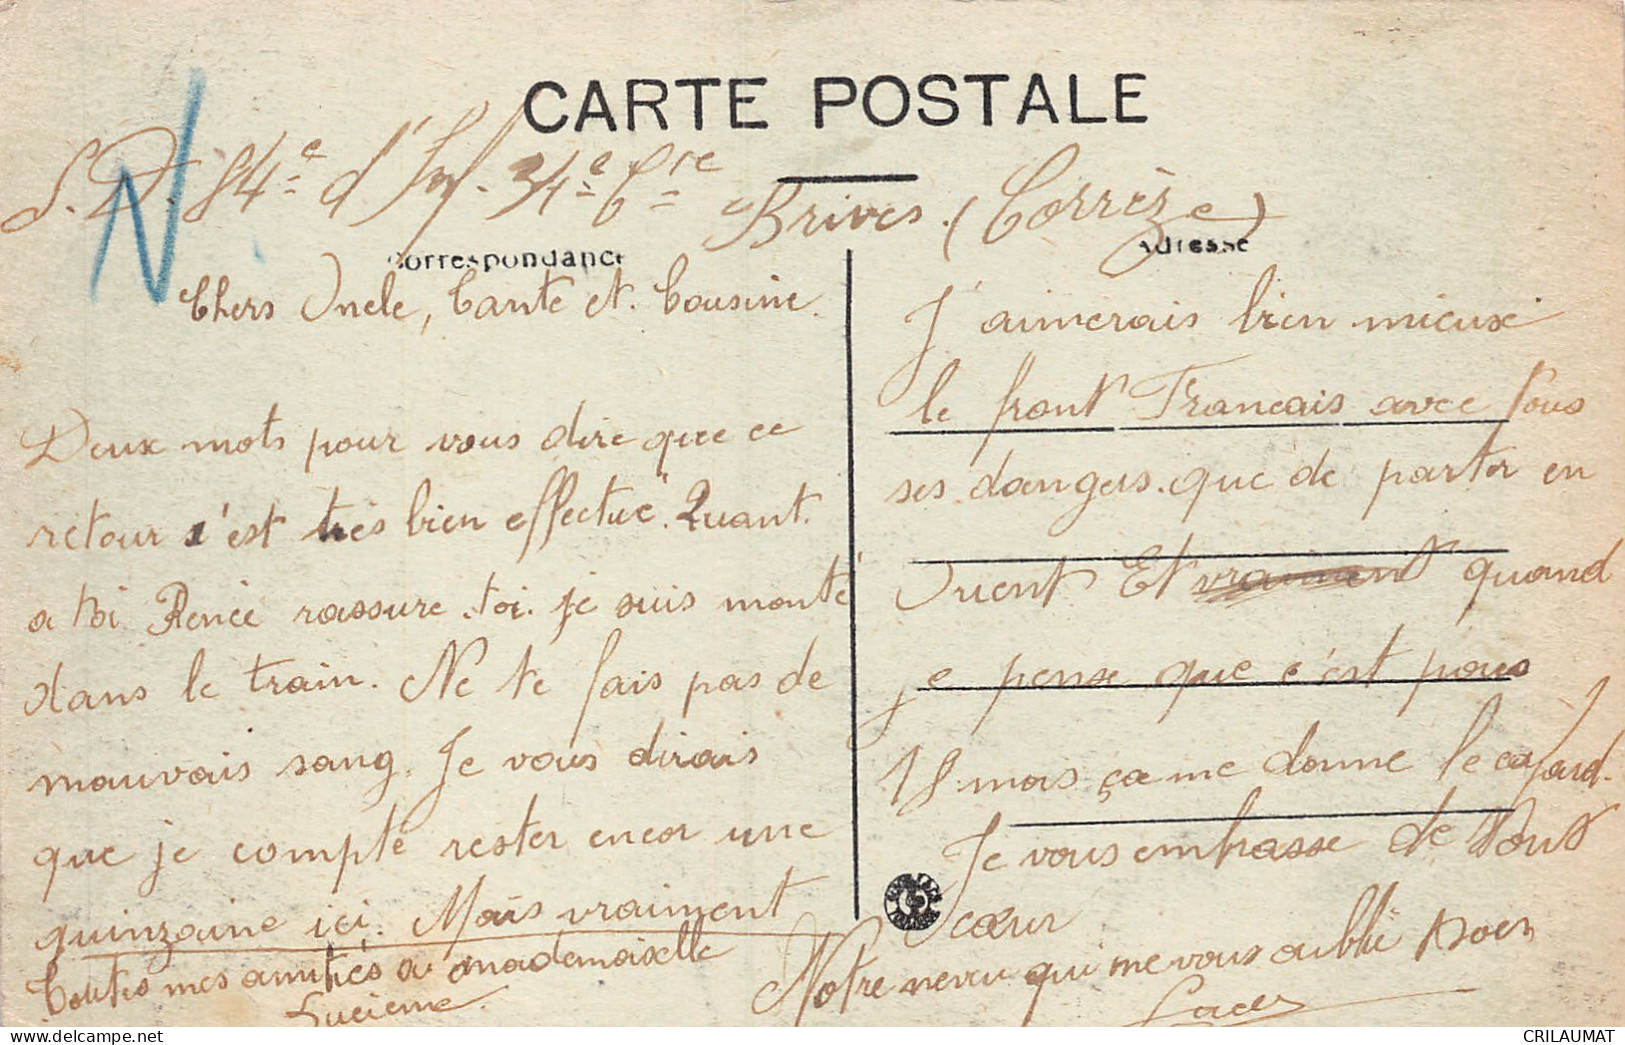 N
CARTE POSTALE
S.D. 84e d'Inf. 34e Cie
Brives. (Corrèze)
Correspondance
Adresse
Chers Oncle, Tante et. Cousine.
Deux mots pour vous dire que ce
retour s'est très bien effectué. Quant.
a toi Renée rassure.toi. je suis monté
dans le train. Ne te fais pas de
mauvais sang. Je vous dirais
que je compte rester encor une
quinzaine ici. Mais vraiment
J'aimerais bien mieux
le front Francais avec tous
ses dangers.que de partir en
Orient Et vraiment quand
je pense que c'est pour
18 mois ça me donne le cafard.
Je vous embrasse de tout
cœur
Toutes mes amitiés a mademoiselle
Lucienne.
Notre neveu qui ne vous oublie